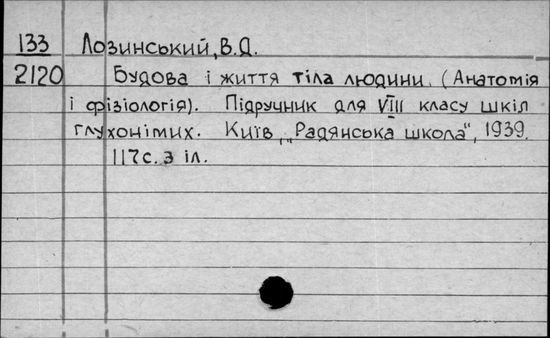 133 Лозинський, В.Д.
2120 Будова і життя тіла людини. (Анатомія
і фізіологія). Підручник для VIII класу шкіл
глухонімих. Київ, „Радянська школа", 1939.
117с. з іл.